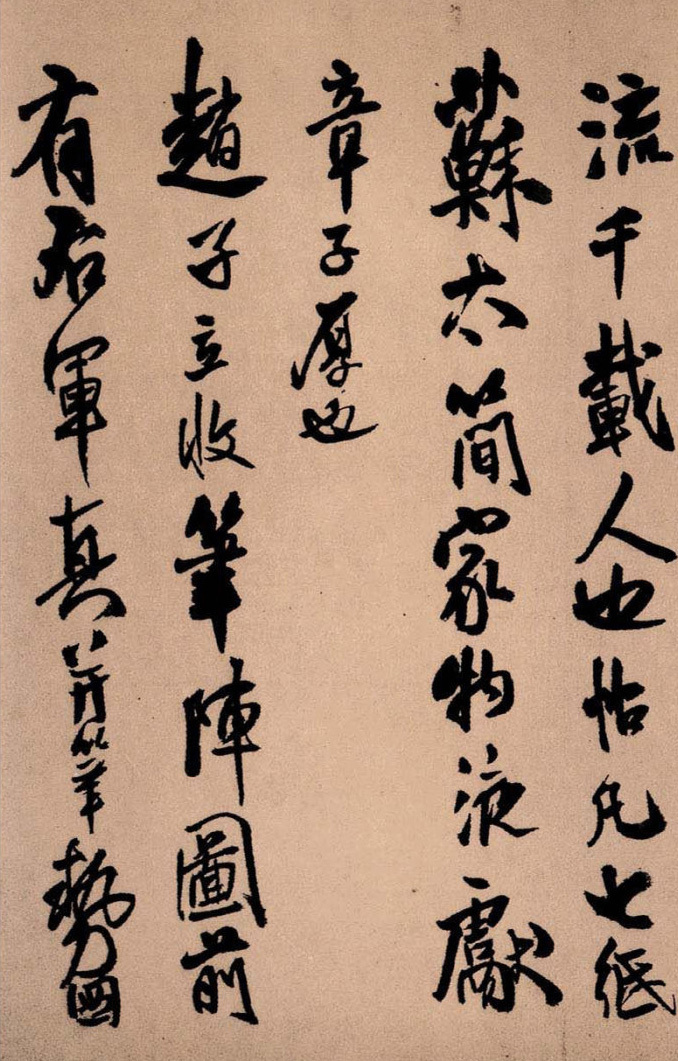 流千載人也帖凡七紙
蘇太簡家物液獻
章子厚也
趙子立收筆陣圖前
有右軍真并筆勢圖